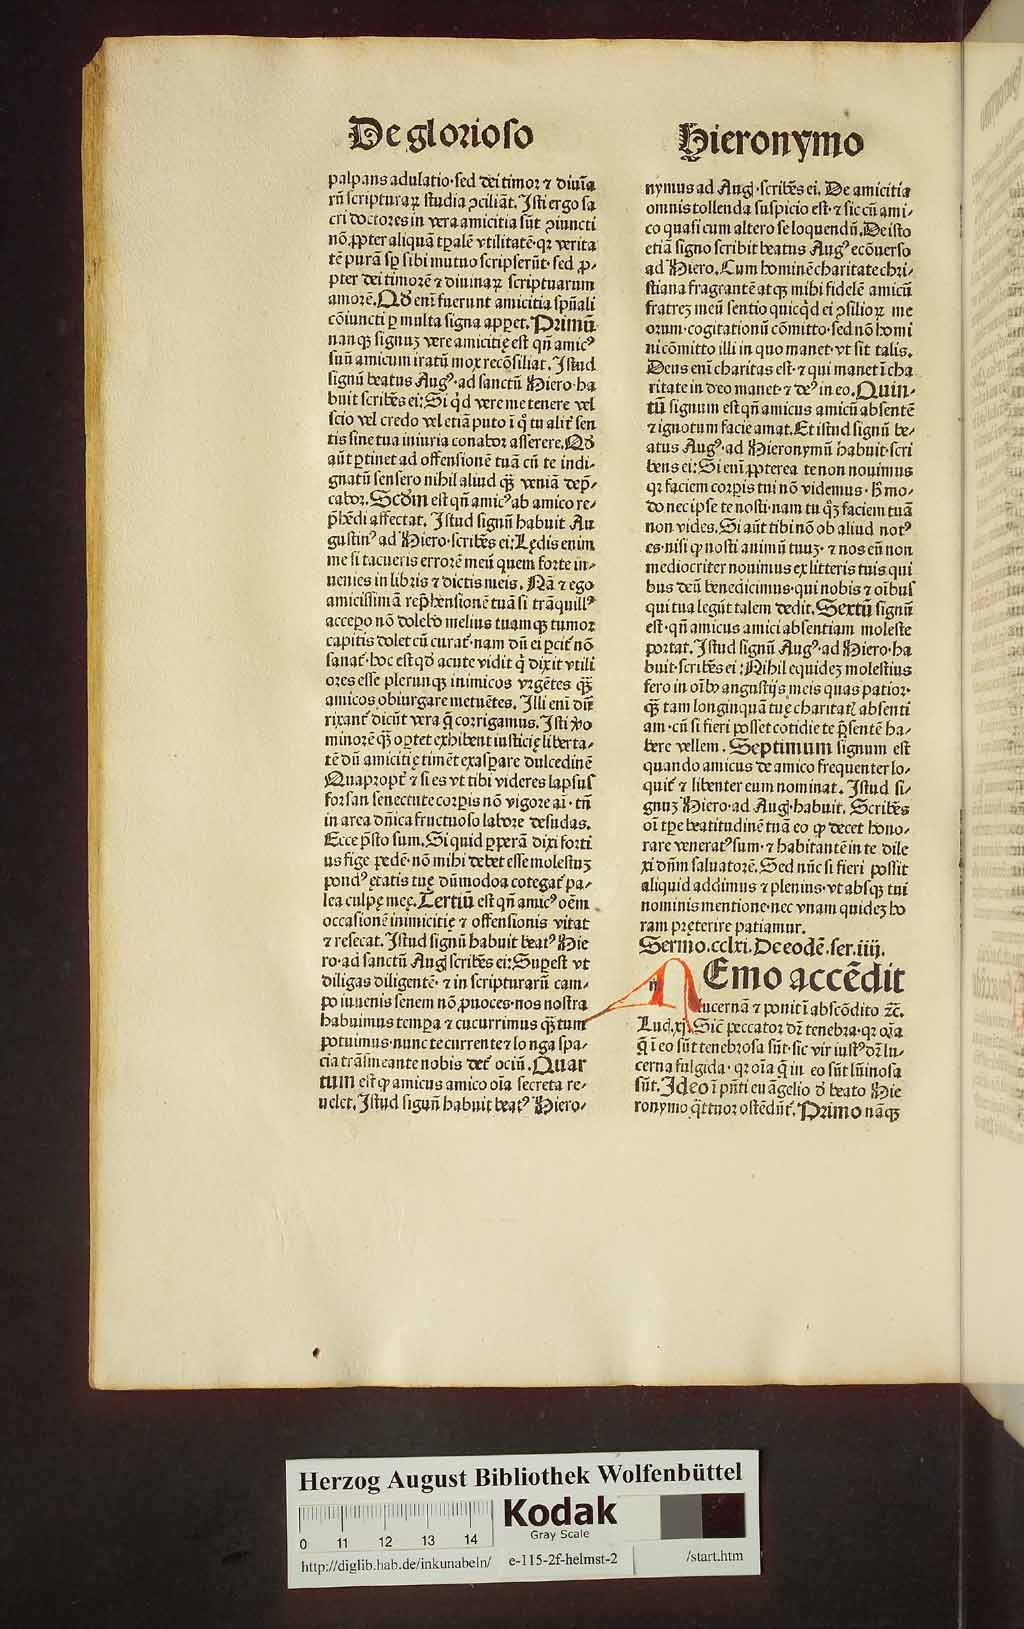 De glorioso
palpans adulatio· sed dei timor ⁊ diuīa
rū scripturaꝝ studia ꝯciliāt. Isti ergo sa
cri doctores in vera amicitia sūt ꝯiuncti
nō ꝓpter aliquā tꝑalē vtilitatē· qꝛ verita
tē purā sꝑ sibi mutuo scripserūt· sed ꝓ-
pter dei timorē ⁊ diuinaꝝ scripturarum
amorē. Qd̕ eni fuerunt amicitia spūali
cōiuncti ꝑ multa signa apꝑet. Primū
nanqꝫ signuꝫ vere amicitię est qn̄ amicꝰ
suū amicum iratū mox recōsiliat. Istud
signū beatus Augꝰ· ad sanctū Hiero· ha
buit scribēs ei: Si qd̕ vere me tenere vel
scio vel credo vel etiā puto ī q̊ tu alit̕ sen
tis sine tua iniuria conabor asserere. Qd̕
aūt ꝑtinet ad offensionē tuā cū te indi-
gnatū sensero nihil aliud qꝫ̄ veniā dep̄-
cabor. Scd̕m est qn̄ amicꝰ ab amico re-
p̄hēdi affectat. Istud signū habuit Au
gustinꝰ ad Hiero· scribēs ei: Lędis enim
me si tacueris errorē meū quem forte in-
uenies in libris ⁊ dictis meis. Nā ⁊ ego
amicissimā rep̄hensionē tuā si trāquillꝰ
accepo nō dolebo melius tuamqꝫ tumor
capitis dolet cū curat̕· nam dū ei ꝑcit̕ nō
sanat̕· hoc est qd̕ acute vidit q̊ dixit vtili
ores esse plerunqꝫ inimicos vrgētes qꝫ̄
amicos obiurgare metuētes. Illi eni dū
rixant̕ dicūt vera q̄ corrigamus. Isti ꝟo
minorē qꝫ̄ oꝑtet exhibent iusticię liberta-
tē dū amicitię timēt exasꝑare dulcedinē
Quapropt̕ ⁊ si es vt tibi videres lapsus
forsan senectute corꝑis nō vigore ai· tn̄
in area dn̄ica fructuoso labore desudas.
Ecce p̄sto sum. Si quid ꝑꝑerā dixi forti
us fige pedē· nō mihi debet esse molestuꝫ
pondꝰ ętatis tuę dūmodoa cotegat̕ pa-
lea culpę meę. Tertiū est qn̄ amicꝰ oēm
occasionē inimicitię ⁊ offensionis vitat
⁊ resecat. Istud signū habuit beatꝰ Hie
ro· ad sanctū Augꝰ scribēs ei: Suꝑest vt
diligas diligentē· ⁊ in scripturarū cam-
po iuuenis senem nō ꝓuoces· nos nostra
habuimus tempa ⁊ cucurrimus qꝫ̄tum
potuimus· nunc te currente ⁊ longa spa-
cia trāsmeante nobis det̕ ociū. Quar
tum est qꝫ amicus amico oīa secreta re-
uelet. Istud signū habuit beatꝰ Hiero-
Hieronymo
nymus ad Augꝰ· scribēs ei. De amicitia
omnis tollenda suspicio est· ⁊ sic cū ami-
co quasi cum altero se loquendū. De isto
etiā signo scribit beatus Augꝰ ecōuerso
ad Hiero. Cum hominē charitate chri-
stiana fragrantē atqꝫ mihi fidelē amicū
fratreꝫ meū sentio quicqd̕ ei ꝯsilioꝝ me
orum· cogitationū cōmitto· sed nō homi
ni cōmitto illi in quo manet· vt sit talis.
Deus eni charitas est· ⁊ qui manet ī cha
ritate in deo manet· ⁊ deꝰ in eo. Quin-
tū signum est qn̄ amicus amicū absentē
⁊ ignotum facie amat. Et istud signū be-
atus Augꝰ· ad Hieronymū habuit· scri
bens ei: Si eni ꝓpterea te non nouimus
qꝛ faciem corꝑis tui nō videmus· h̕ mo-
do nec ipse te nosti· nam tu qꝫ faciem tuā
non vides. Si aūt tibi nō ob aliud notꝰ
es· nisi qꝫ nosti animū tuuꝫ· ⁊ nos eū non
mediocriter nouimus ex litteris tuis qui
bus deū benedicimus· qui nobis ⁊ oībus
qui tua legūt talem dedit. Sextū signū
est· qn̄ amicus amici absentiam moleste
portat. Istud signū Augꝰ· ad Hiero· ha
buit· scribēs ei: Nihil equideꝫ molestius
fero in oībꝰ angustijs meis quas patior·
qꝫ̄ tam longinquā tuę charitatꝭ absenti
am· cū si fieri posset cotidie te p̄sentē ha-
bere vellem. Septimum signum est
quando amicus de amico frequenter lo-
quit̕ ⁊ libenter eum nominat. Istud si-
gnuꝫ Hiero· ad Augꝰ· habuit. Scribēs
oī tꝑe beatitudinē tuā eo qꝫ decet hono-
rare veneratꝰ sum· ⁊ habitantē in te dile
xi dn̄m saluatorē. Sed nūc si fieri possit
aliquid addimus ⁊ plenius· vt absqꝫ tui
nominis mentione· nec vnam quideꝫ ho
ram pręterire patiamur.
Sermo.cclxi. De eodē. ser.iiij.
NEmo accēdit
lucernā ⁊ ponit ī abscōdito ⁊c̄.
Luc̄.xj. Sic̄ peccator dꝛ̄ tenebra· qꝛ oīa
q̄ ī eo sūt tenebrosa sūt· sic vir iustꝰ dꝛ̄ lu-
cerna fulgida· qꝛ oīa q̄ in eo sūt lūinosa
sūt. Ideo ī pn̄ti euāgelio d̕ beato Hie
ronymo q̄ttuor ostēdūt̕. Primo nāqꝫ
Herzog August Bibliothek Wolfenbüttel
Kodak
Gray Scale
0 11 12 13 14
http://diglib.hab.de/inkunabeln/ e-115-2f-helmst-2 /start.htm